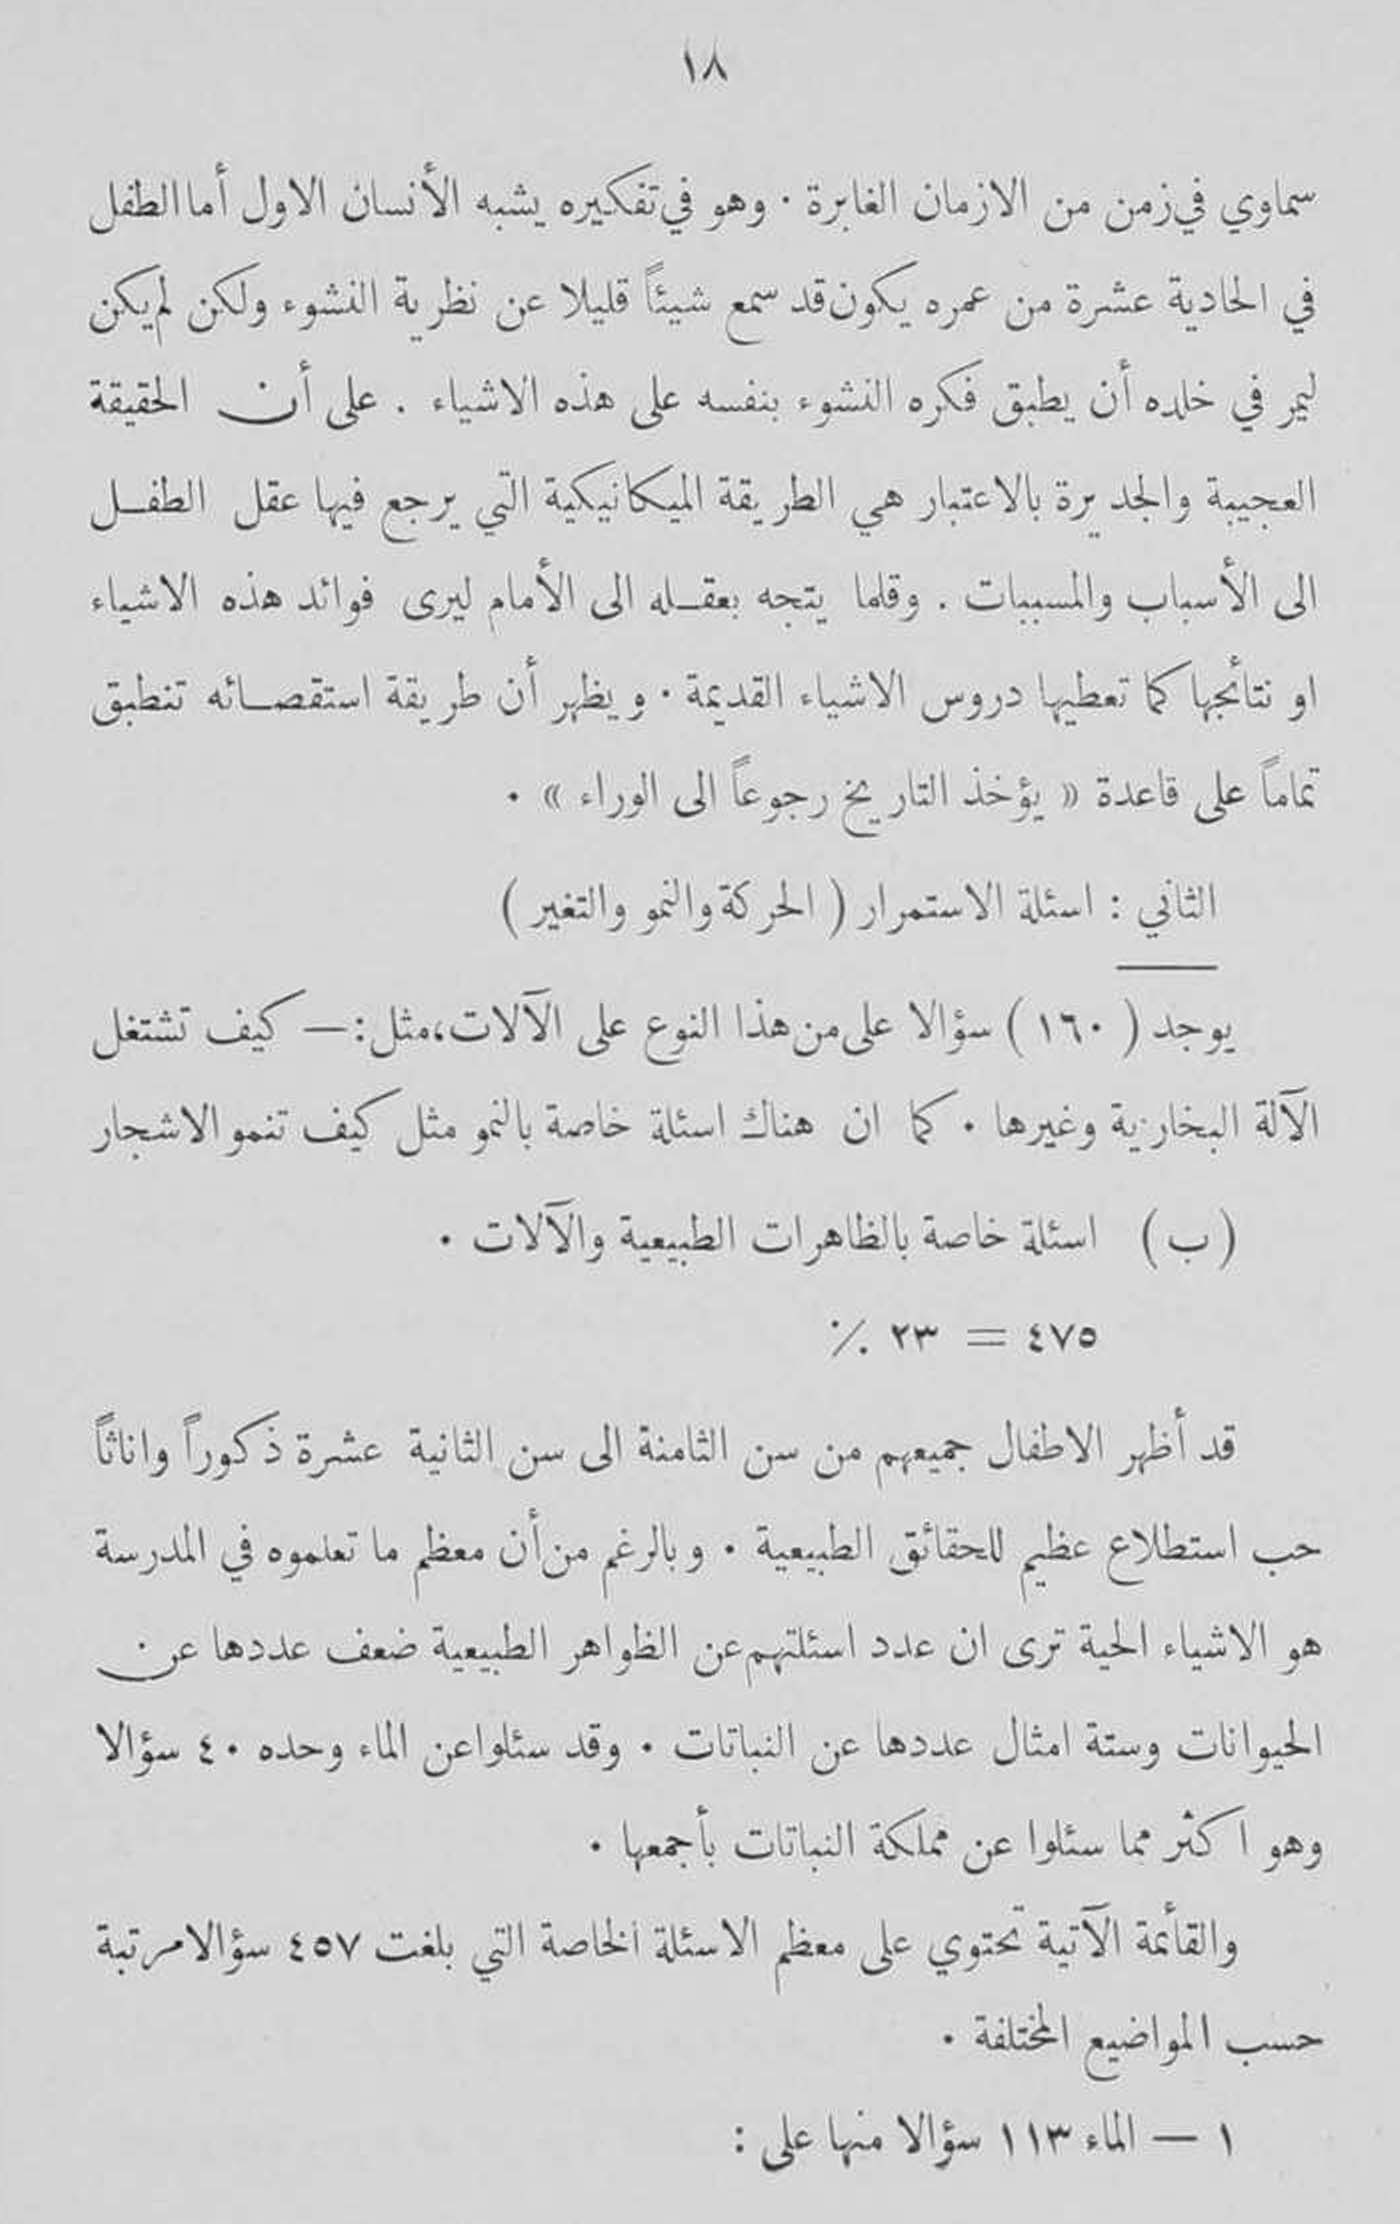 ١٨
سماوي في زمن من الازمان الغابرة . وهو في تفكيره يشبه الأنسان الاول أما الطفل
في الحادية عشرة من عمره يكون قد سمع شيئاً قليلا عن نظرية النشوء ولكن لم يكن
ليمر في خلده أن يطبق فكره النشوء بنفسه على هذه الاشياء . على أن الحقيقة
العجيبة والجديرة بالاعتبار هي الطريقة الميكانيكية التي يرجع فيها عقل الطفل
الى الأسباب والمسببات . وقلما يتجه بعقله الى الأمام ليرى فوائد هذه الاشياء
او نتائجها كما تعطيها دروس الاشياء القديمة . ويظهر أن طريقة استقصائه تنطبق
تماماً على قاعدة « يؤخذ التاريخ رجوعاً الى الوراء » .
الثاني : اسئلة الاستمرار ( الحركة والنمو والتغير )
يوجد ( ١٦٠ ) سؤالا على من هذا النوع على الآلات ، مثل : — كيف تشتغل
الآلة البخارية وغيرها . كما ان هناك اسئلة خاصة بالنمو مثل كيف تنمو الاشجار
( ب ) اسئلة خاصة بالظاهرات الطبيعية والآلات .
٤٧٥ = ٢٣ ٪
قد أظهر الاطفال جميعهم من سن الثامنة الى سن الثانية عشرة ذكوراً واناثاً
حب استطلاع عظيم للحقائق الطبيعية . وبالرغم من أن معظم ما تعلموه في المدرسة
هو الاشياء الحية ترى ان عدد اسئلتهم عن الظواهر الطبيعية ضعف عددها عن
الحيوانات وستة امثال عددها عن النباتات . وقد سئلوا عن الماء وحده ٤٠ سؤالا
وهو اكثر مما سئلوا عن مملكة النباتات بأجمعها .
والقائمة الآتية تحتوي على معظم الاسئلة الخاصة التي بلغت ٤٥٧ سؤالا مرتبة
حسب المواضيع المختلفة .
١ — الماء ١١٣ سؤالا منها على :